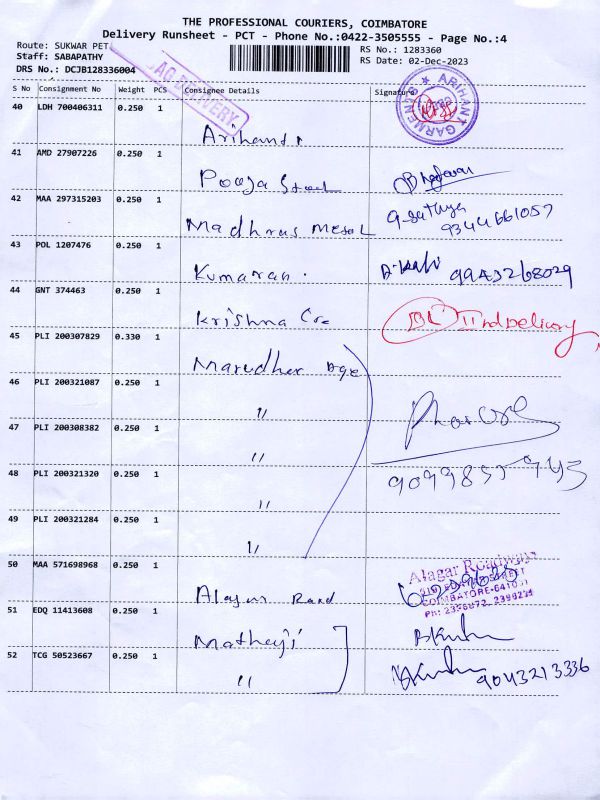 THE PROFESSIONAL COURIERS, COIMBATORE
Delivery Runsheet - PCT - Phone No.:0422-3505555 - Page No.:4
Route: SUKWAR PET
Staff: SABAPATHY
DRS No.: DCJB128336004
RS No.: 1283360
RS Date: 02-Dec-2023
S No Consignment No Weight PCS Consignee Details Signature
DELIVERY
ARIHANT GARMENTS
40 LDH 700406311 0.250 1
Arihant
41 AMD 27907226 0.250 1
Pooja Steel
42 MAA 297315203 0.250 1
Madhras Metal
9344661057
43 POL 1207476 0.250 1
Kumaran.
9943268029
44 GNT 374463 0.250 1
Krishna Cre
IInd Delivery
45 PLI 200307829 0.330 1
Marudher Age
46 PLI 200321087 0.250 1
"
47 PLI 200308382 0.250 1
"
48 PLI 200321320 0.250 1
"
49 PLI 200321284 0.250 1
"
50 MAA 571698968 0.250 1
Alagar Road
Alagar Roadways
COIMBATORE-641001
51 EDQ 11413608 0.250 1
Mathaji
52 TCG 50523667 0.250 1
"
9043213336